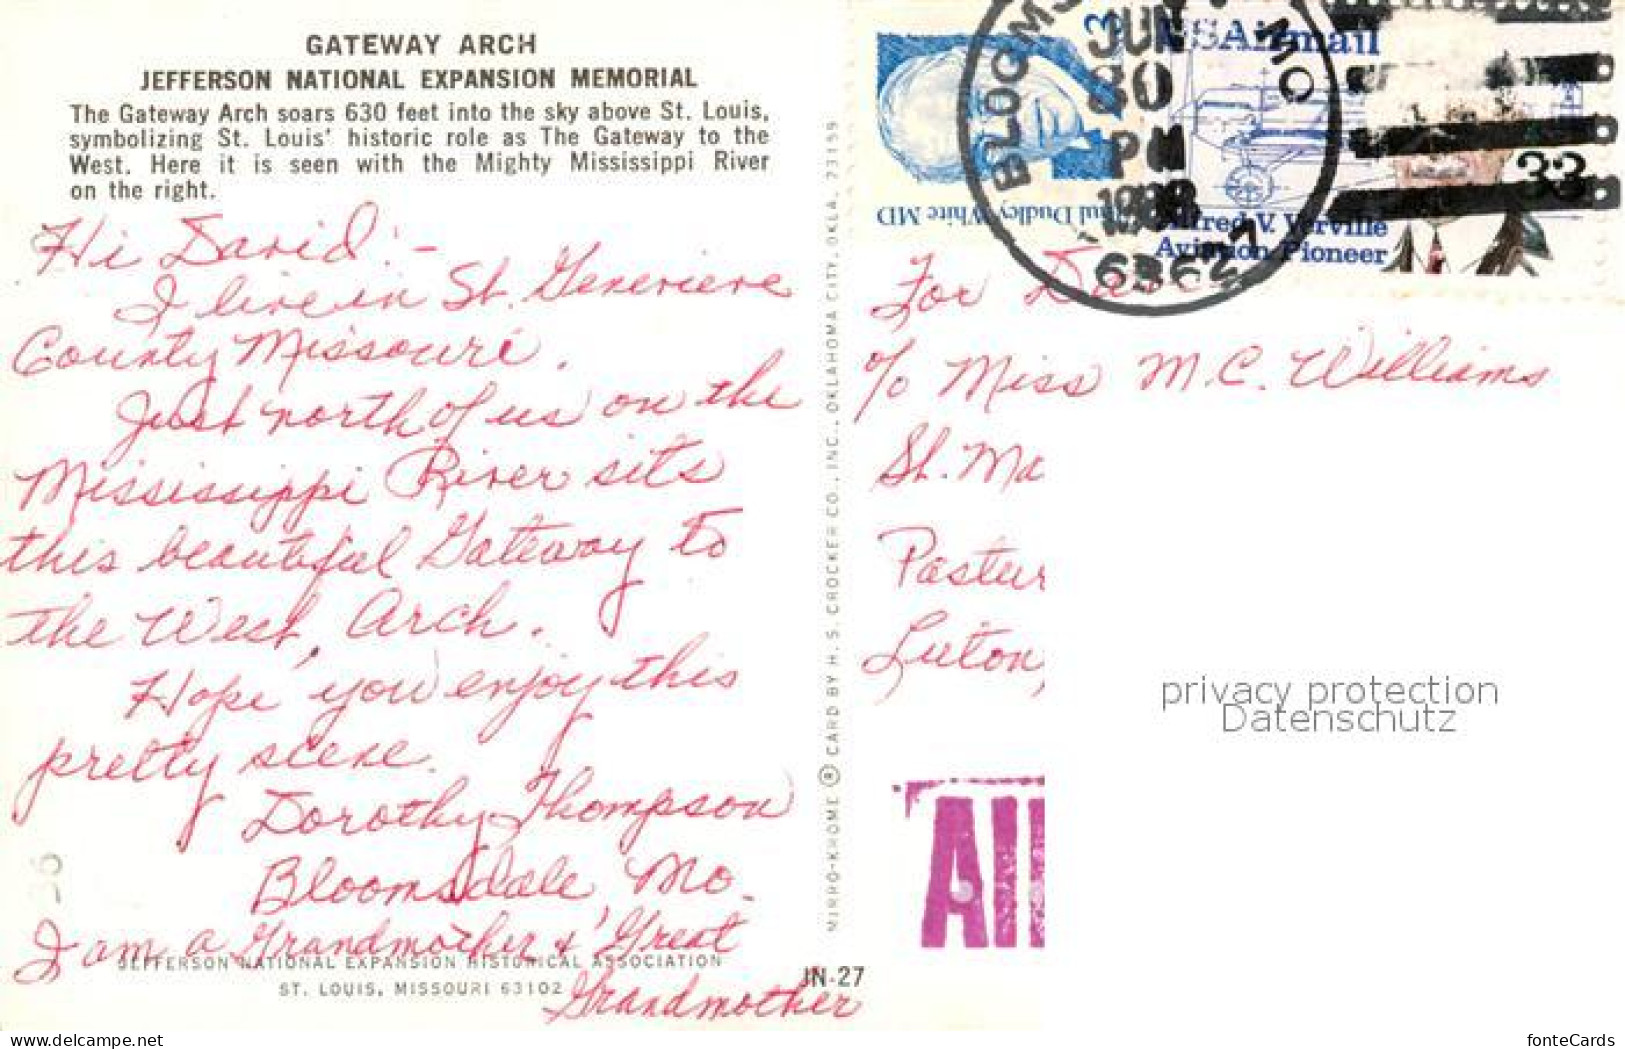 GATEWAY ARCH
JEFFERSON NATIONAL EXPANSION MEMORIAL
The Gateway Arch soars 630 feet into the sky above St. Louis,
symbolizing St. Louis' historic role as The Gateway to the
West. Here it is seen with the Mighty Mississippi River
on the right.
Hi David:-
I live in St. Genevieve
County Missouri.
Just north of us on the
Mississippi River sits
this beautiful Gateway to
the West, Arch.
Hope you enjoy this
pretty scene.
Dorothy Thompson
Bloomsdale, Mo.
I am a Grandmother & Great
Grandmother
JEFFERSON NATIONAL EXPANSION HISTORICAL ASSOCIATION
ST. LOUIS, MISSOURI 63102
JN-27
MIRRO-KROME ® CARD BY H. S. CROCKER CO., INC., OKLAHOMA CITY, OKLA. 73159
3
Paul Dudley White MD
USAirmail
33
Alfred V. Verville
Aviation Pioneer
MO
JUN
PM
For
c/o Miss M.C. Williams
St. Ma
Pastur
Luton,
AI
privacy protection
Datenschutz
www.delcampe.net
fonteCards